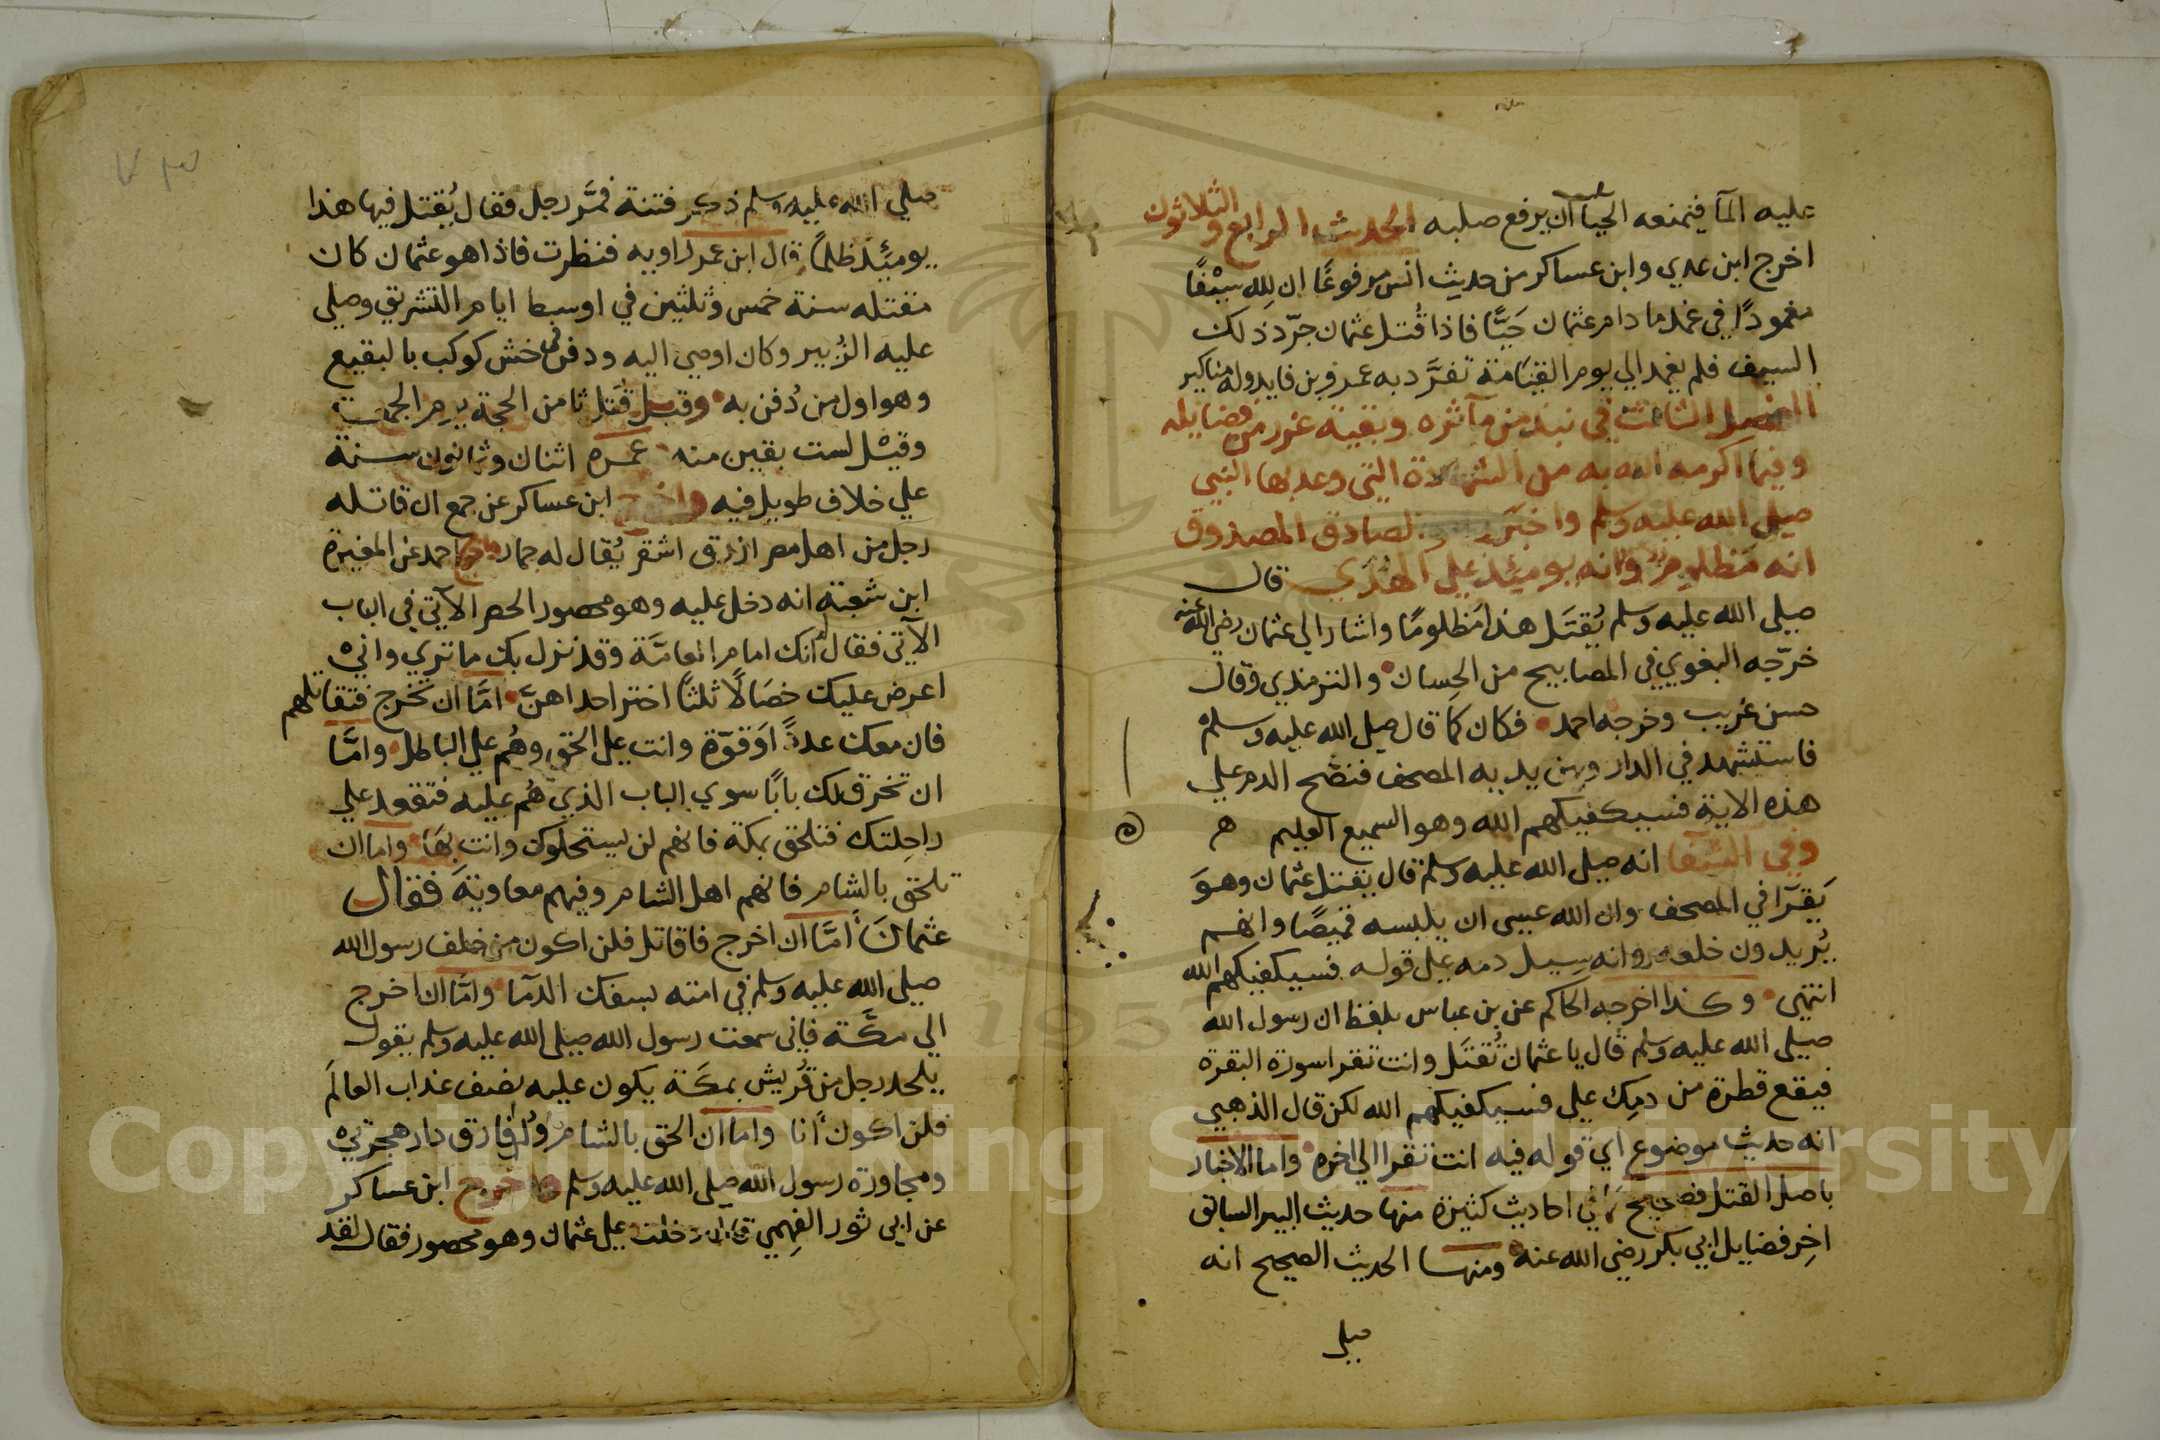 عليه المآ فيمنعه الحيآ ان يرفع صلبه الحديث الرابع والثلاثون
اخرج ابن عدي وابن عساكر من حديث انس مرفوعًا ان لله سيفًا
مغمودًا في غمده ما دام عثمان حَيًّا فاذا قُتل عثمان جرّد ذلك
السيف فلم يغمد الي يوم القيامة تفرَّد به عمرو بن فايد وله مناكير
الفصل الثالث في نبذ من مآثره وبقية غرر من فضايله
وفيما اكرمه الله به من الشهادة التي وعد بها النبي
صلي الله عليه وسلم واخبر الصادق المصدوق
انه مظلوم وانه يوميذ علي الهدي قال
صلي الله عليه وسلم يُقتَل هذا مَظلومًا واشار الي عثمان رضي الله عنه
خرّجه البغوي في المصابيح من الحِسان والترمذي وقال
حسن غريب وخرجه احمد فكان كما قال صلي الله عليه وسلم
فاستشهد في الدار وبين يديه المصحف فنضح الدم علي
هذه الاية فسيكفيكهم الله وهو السميع العليم ه
وفي الشفا انه صلي الله عليه وسلم قال يقتل عثمان وهوَ
يَقرَآ في المصحف وان الله عسي ان يلبسه قميصًا وانهم
يُريدون خلعه وانه سيسيل دمه علي قوله فسيكفيكهم الله
انتهي وكذا اخرجه الحاكم عن بن عباس بلفظ ان رسول الله
صلي الله عليه وسلم قال يا عثمان تُقتَل وانت تقرا سورة البقرة
فيقع قطرة من دمِك علي فسيكفيكهم الله لكن قال الذهبي
انه حديث موضوع اي قوله فيه انت تقرا الي اخره واما الاخبار
باصل القتل فصحيح كما في احاديث كثيرة منها حديث البير السابق
اخِر فضايل ابي بكر رضي الله عنه ومنها الحديث الصحيح انه
صلي
٧٣
صلي الله عليه وسلم ذكر فتنة فمَّر رجل فقال يُقتل فيها هذا
يوميَئذ ظلمًا قال ابن عمر راويه فنظرت فاذا هو عثمان كان
مقتله سنة خمس وثلثين في اوسط ايام التشريق وصلي
عليه الزُبير وكان اوصي اليه ودفن في حش كوكب بالبقيع
وهو اول من دُفن به وقيل قتل ثامن الحجة يوم الجمعة
وقيل لست بقين منه عمره اثنان وثمانون سنة
علي خلاف طويل فيه واخرج ابن عساكر عن جمع ان قاتله
رجل من اهل مصر ازرق اشقر يُقال له حمار واخرج احمد عن المغيرة
ابن شعبة انه دخل عليه وهو محصور الحصر الآتي في الباب
الآتي فقال انك امام العامَّة وقد نزل بك ما تري واني
اعرض عليك خصَالًا ثلثًا اختر احداهنّ امَّا ان تخرج فتقاتلهم
فان معك عددًا وَقوّة وانت علي الحق وهُم علي الباطل وامَّا
ان تخرق لك بابًا سوي الباب الذي هُم عليه فتقعد علي
راحِلتك فتلحق بمكة فانهم لن يستحلوك وانت بهَا واما ان
تلحق بالشام فانهم اهل الشام وفيهم معاويَة فقال
عثمانَ امَّا ان اخرج فاقاتل فلن اكون من خلف رسول الله
صلي الله عليه وسلم في امته بسفك الدمآ وامَّا ان اخرج
الي مكَّة فاني سمعت رسول الله صلي الله عليه وسلم يقول
يلحد رجل من قُريش بمكَة يكون عليه نصف عذاب العالَم
فلن اكون انا واما ان الحق بالشام فلن افارق دار هجرتي
ومجاورة رسول الله صلي الله عليه وسلم واخرج ابن عساكر
عن ابي ثور الفِهمي قال دخلت علي عثمان وهو محصور فقال لقد
Copyright © King Saud University
195